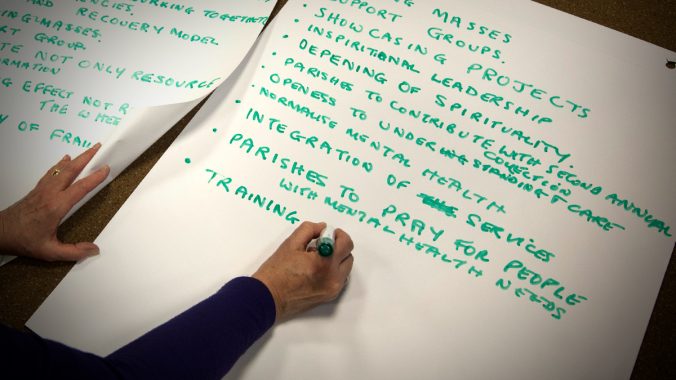 WORKING TOGETHER
RECOVERY MODEL
MASSES.
GROUP.
NOT ONLY RESOURCE
EFFECT NOT R
THE WHEE
OF FRAI
MASSES
SUPPORT GROUPS.
• SHOWCASING PROJECTS
• INSPIRITIONAL LEADERSHIP
• DEPENING OF SPIRITUALITY.
• PARISHES TO CONTRIBUTE WITH SECOND ANNUAL
COLLECTION
• OPENNESS TO UNDERSTANDING & CARE
• NORMALISE MENTAL HEALTH
• INTEGRATION OF SERVICES
• PARISHES TO PRAY FOR PEOPLE
WITH MENTAL HEALTH NEEDS
• TRAINING